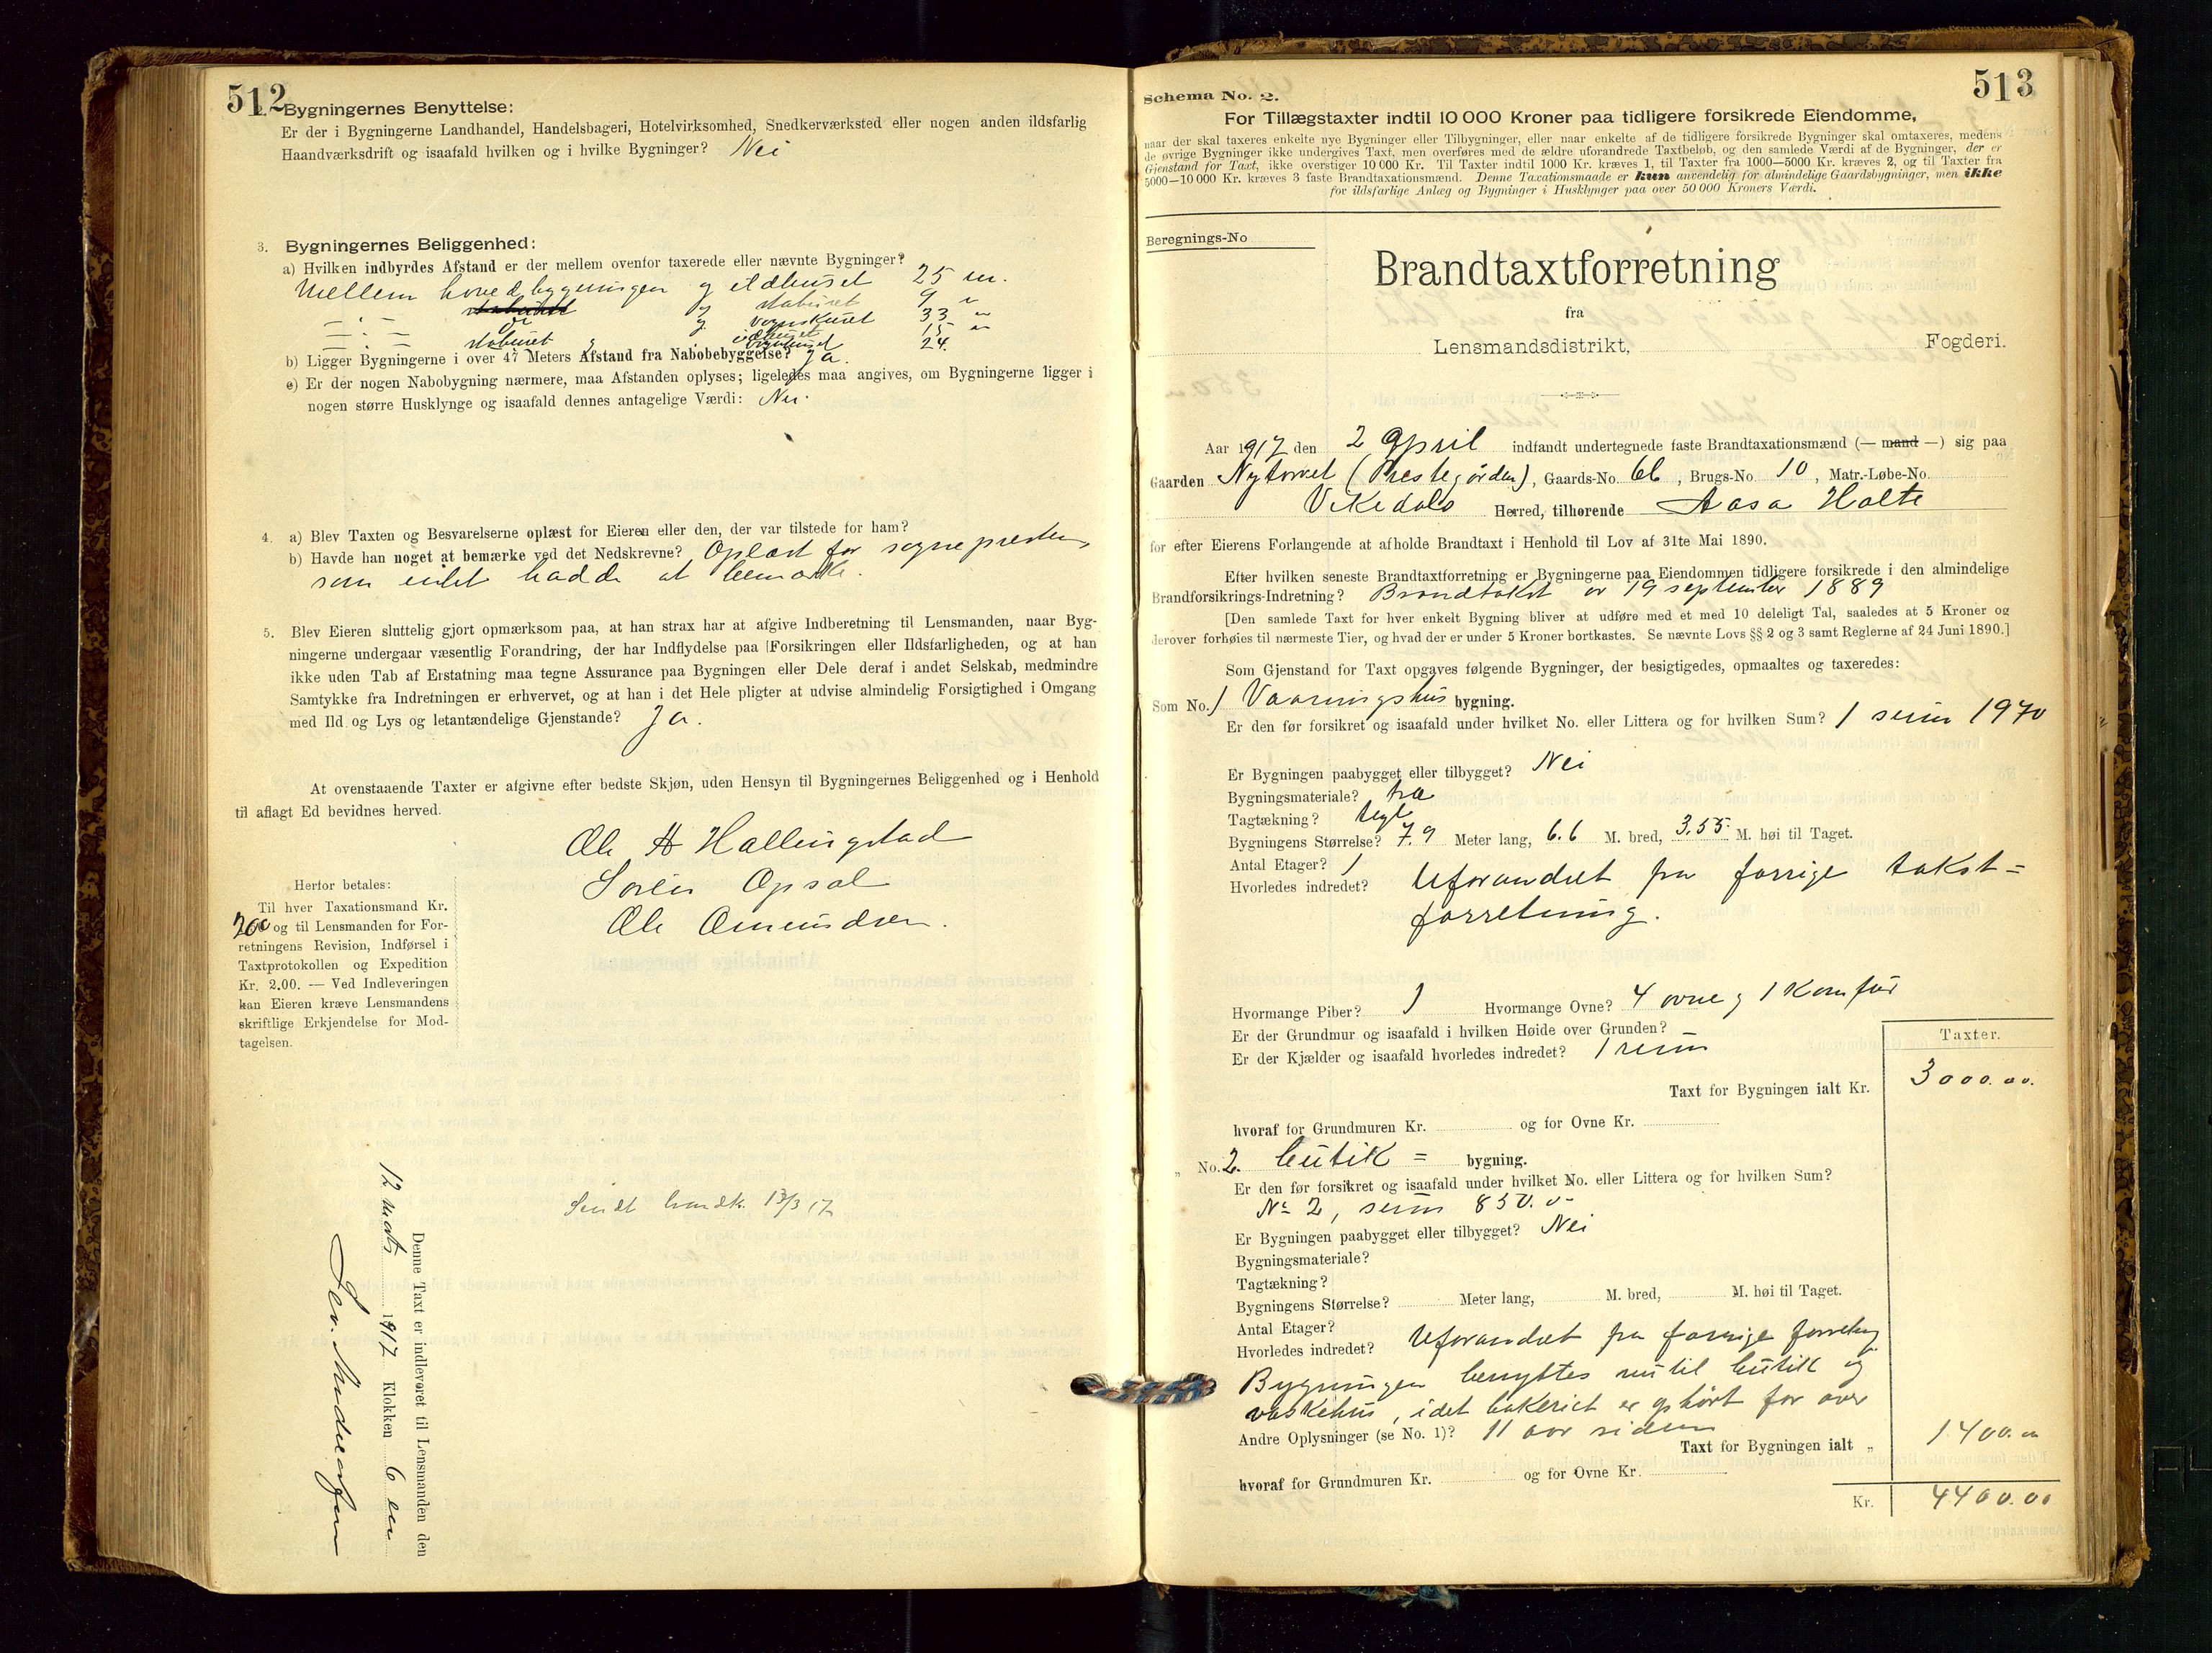 512
Bygningernes Benyttelse:
Er der i Bygningerne Landhandel, Handelsbageri, Hotelvirksomhed, Snedkerværksted eller nogen anden ildsfarlig
Haandværksdrift og isaafald hvilken og i hvilke Bygninger? Nei
3. Bygningernes Beliggenhed:
a) Hvilken indbyrdes Afstand er der mellem ovenfor taxerede eller nævnte Bygninger?
Mellem hovedbygningen og ildhuset 25 m.
staburet 9 "
og vognskuret 33 "
15 "
staburet 24.
b) Ligger Bygningerne i over 47 Meters Afstand fra Nabobebyggelse? Ja.
c) Er der nogen Nabobygning nærmere, maa Afstanden oplyses; ligeledes maa angives, om Bygningerne ligger i
nogen større Husklynge og isaafald dennes antagelige Værdi: Nei.
4. a) Blev Taxten og Besvarelserne oplæst for Eieren eller den, der var tilstede for ham?
b) Havde han noget at bemærke ved det Nedskrevne? Oplæst for sognepresten,
som intet hadde at bemærke.
5. Blev Eieren sluttelig gjort opmærksom paa, at han strax har at afgive Indberetning til Lensmanden, naar Byg-
ningerne undergaar væsentlig Forandring, der har Indflydelse paa Forsikringen eller Ildsfarligheden, og at han
ikke uden Tab af Erstatning maa tegne Assurance paa Bygningen eller Dele deraf i andet Selskab, medmindre
Samtykke fra Indretningen er erhvervet, og at han i det Hele pligter at udvise almindelig Forsigtighed i Omgang
med Ild og Lys og letantændelige Gjenstande? Ja.
At ovenstaaende Taxter er afgivne efter bedste Skjøn, uden Hensyn til Bygningernes Beliggenhed og i Henhold
til aflagt Ed bevidnes herved.
Ole H Hallingstad
Søren Opsal
Ole Omundsen.
Herfor betales:
Til hver Taxationsmand Kr.
200 og til Lensmanden for For-
retningens Revision, Indførsel i
Taxtprotokollen og Expedition
Kr. 2.00. — Ved Indleveringen
kan Eieren kræve Lensmandens
skriftlige Erkjendelse for Mod-
tagelsen.
Sendt brandk. 13/3 17
Denne Taxt er indleveret til Lensmanden den
12 mars 1917 Klokken 6 em
513
Schema No. 2.
For Tillægstaxter indtil 10 000 Kroner paa tidligere forsikrede Eiendomme,
naar der skal taxeres enkelte nye Bygninger eller Tilbygninger, eller naar enkelte af de tidligere forsikrede Bygninger skal omtaxeres, medens
de øvrige Bygninger ikke undergives Taxt, men overføres med de ældre uforandrede Taxtbeløb, og den samlede Værdi af de Bygninger, der er
Gjenstand for Taxt, ikke overstiger 10 000 Kr. Til Taxter indtil 1000 Kr. kræves 1, til Taxter fra 1000—5000 Kr. kræves 2, og til Taxter fra
5000—10 000 Kr. kræves 3 faste Brandtaxationsmænd. Denne Taxationsmaade er kun anvendelig for almindelige Gaardsbygninger, men ikke
for ildsfarlige Anlæg og Bygninger i Husklynger paa over 50 000 Kroners Værdi.
Beregnings-No
Brandtaxtforretning
fra
Lensmandsdistrikt, Fogderi.
Aar 1917 den 2 April indfandt undertegnede faste Brandtaxationsmænd (— mand —) sig paa
Gaarden Nytorvet (Prestegården), Gaards-No. 66, Brugs-No. 10, Matr.-Løbe-No.
Vikedals Herred, tilhørende Aasa Holte
for efter Eierens Forlangende at afholde Brandtaxt i Henhold til Lov af 31te Mai 1890.
Efter hvilken seneste Brandtaxtforretning er Bygningerne paa Eiendommen tidligere forsikrede i den almindelige
Brandforsikrings-Indretning? Brandtakst av 19 september 1889
[Den samlede Taxt for hver enkelt Bygning bliver at udføre med et med 10 deleligt Tal, saaledes at 5 Kroner og
derover forhøies til nærmeste Tier, og hvad der er under 5 Kroner bortkastes. Se nævnte Lovs §§ 2 og 3 samt Reglerne af 24 Juni 1890.]
Som Gjenstand for Taxt opgaves følgende Bygninger, der besigtigedes, opmaaltes og taxeredes:
Som No. 1 Vaaningshus bygning.
Er den før forsikret og isaafald under hvilket No. eller Littera og for hvilken Sum? 1 sum 1970
Er Bygningen paabygget eller tilbygget? Nei
Bygningsmateriale? træ
Tagtækning? tegl
Bygningens Størrelse? 7.9 Meter lang, 6.6 M. bred, 3.55 M. høi til Taget.
Antal Etager? 1
Hvorledes indredet? Uforandret fra forrige takst-
forretning.
Hvormange Piber? 1 Hvormange Ovne? 4 ovne og 1 komfur
Er der Grundmur og isaafald i hvilken Høide over Grunden?
Er der Kjælder og isaafald hvorledes indredet? 1 rum
Taxter.
Taxt for Bygningen ialt Kr. 3000.00.
hvoraf for Grundmuren Kr. og for Ovne Kr.
„ No. 2. butik = bygning.
Er den før forsikret og isaafald under hvilket No. eller Littera og for hvilken Sum?
No 2, sum 850.0-
Er Bygningen paabygget eller tilbygget? Nei
Bygningsmateriale?
Tagtækning?
Bygningens Størrelse? Meter lang, M. bred, M. høi til Taget.
Antal Etager?
Hvorledes indredet? Uforandret fra forrige forretng
Bygningen benyttes nu til butik og
vaskehus, idet bakeriet er ophørt for over
Andre Oplysninger (se No. 1)? 11 aar siden
Taxt for Bygningen ialt „ 1400.00
hvoraf for Grundmuren Kr. og for Ovne Kr.
Kr. 4400.00